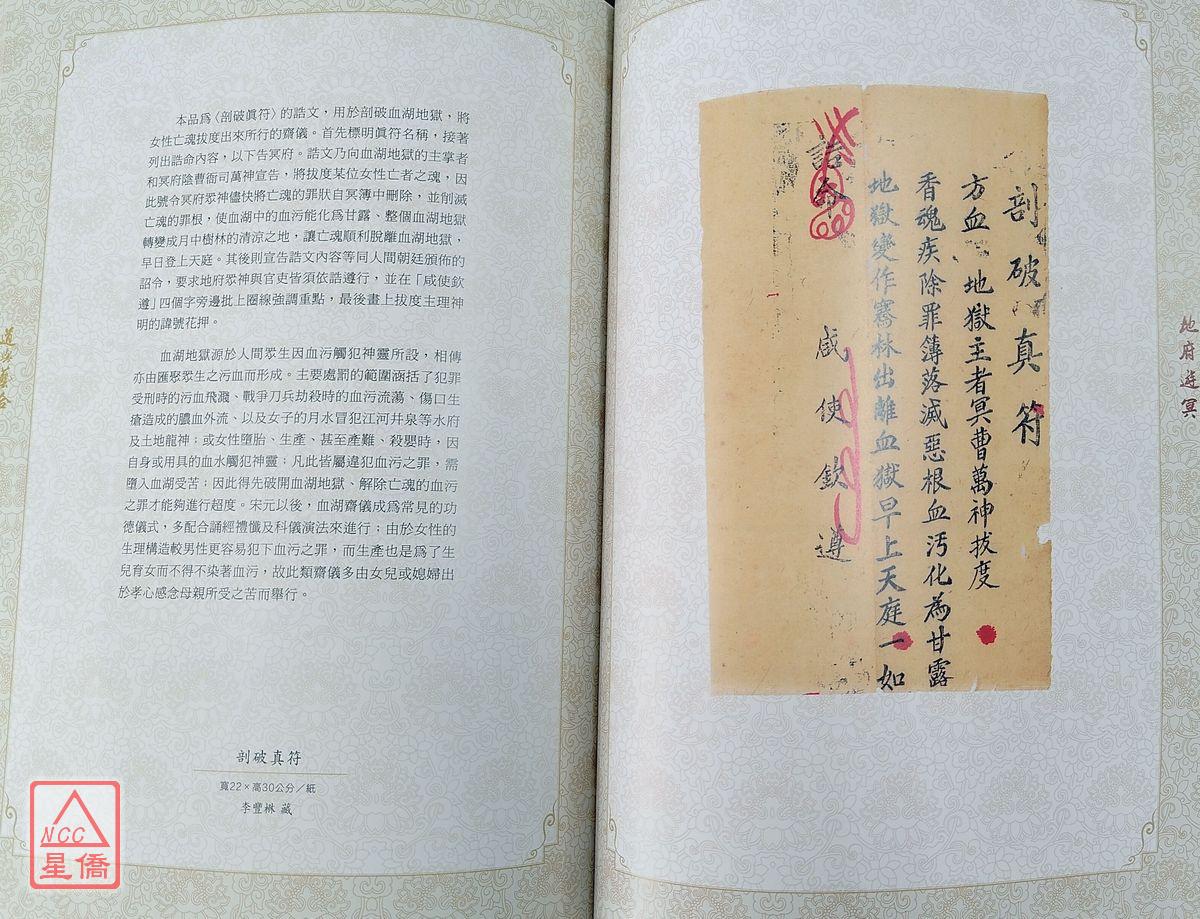 本品爲〈剖破眞符〉的誥文，用於剖破血湖地獄，將
女性亡魂拔度出來所行的齋儀。首先標明眞符名稱，接著
列出誥命內容，以下告冥府。誥文乃向血湖地獄的主掌者
和冥府陰曹衙司萬神宣告，將拔度某位女性亡者之魂，因
此號令冥府眾神儘快將亡魂的罪狀自冥簿中刪除，並削滅
亡魂的罪根，使血湖中的血污能化爲甘露、整個血湖地獄
轉變成月中樹林的清涼之地，讓亡魂順利脫離血湖地獄，
早日登上天庭。其後則宣告誥文內容等同人間朝廷頒佈的
詔令，要求地府眾神與官吏皆須依誥遵行，並在「咸使欽
遵」四個字旁邊批上圈線強調重點，最後畫上拔度主理神
明的諱號花押。
血湖地獄源於人間眾生因血污觸犯神靈所設，相傳
亦由匯聚眾生之污血而形成。主要處罰的範圍涵括了犯罪
受刑時的污血飛濺、戰爭刀兵劫殺時的血污流蕩、傷口生
瘡造成的膿血外流、以及女子的月水冒犯江河井泉等水府
及土地龍神；或女性墮胎、生產、甚至產難、殺嬰時，因
自身或用具的血水觸犯神靈；凡此皆屬違犯血污之罪，需
墮入血湖受苦；因此得先破開血湖地獄、解除亡魂的血污
之罪才能夠進行超度。宋元以後，血湖齋儀成爲常見的功
德儀式，多配合誦經禮懺及科儀演法來進行；由於女性的
生理構造較男性更容易犯下血污之罪，而生產也是爲了生
兒育女而不得不染著血污，故此類齋儀多由女兒或媳婦出
於孝心感念母親所受之苦而舉行。
剖破真符
寬22×高30公分／紙
李豐楙 藏
NCC
星僑
剖破真符
方血 地獄主者冥曹萬神拔度
香魂疾除罪簿落滅惡根血汚化為甘露
地獄變作騫林出離血獄早上天庭一如
誥命
咸使欽遵
地府遊冥